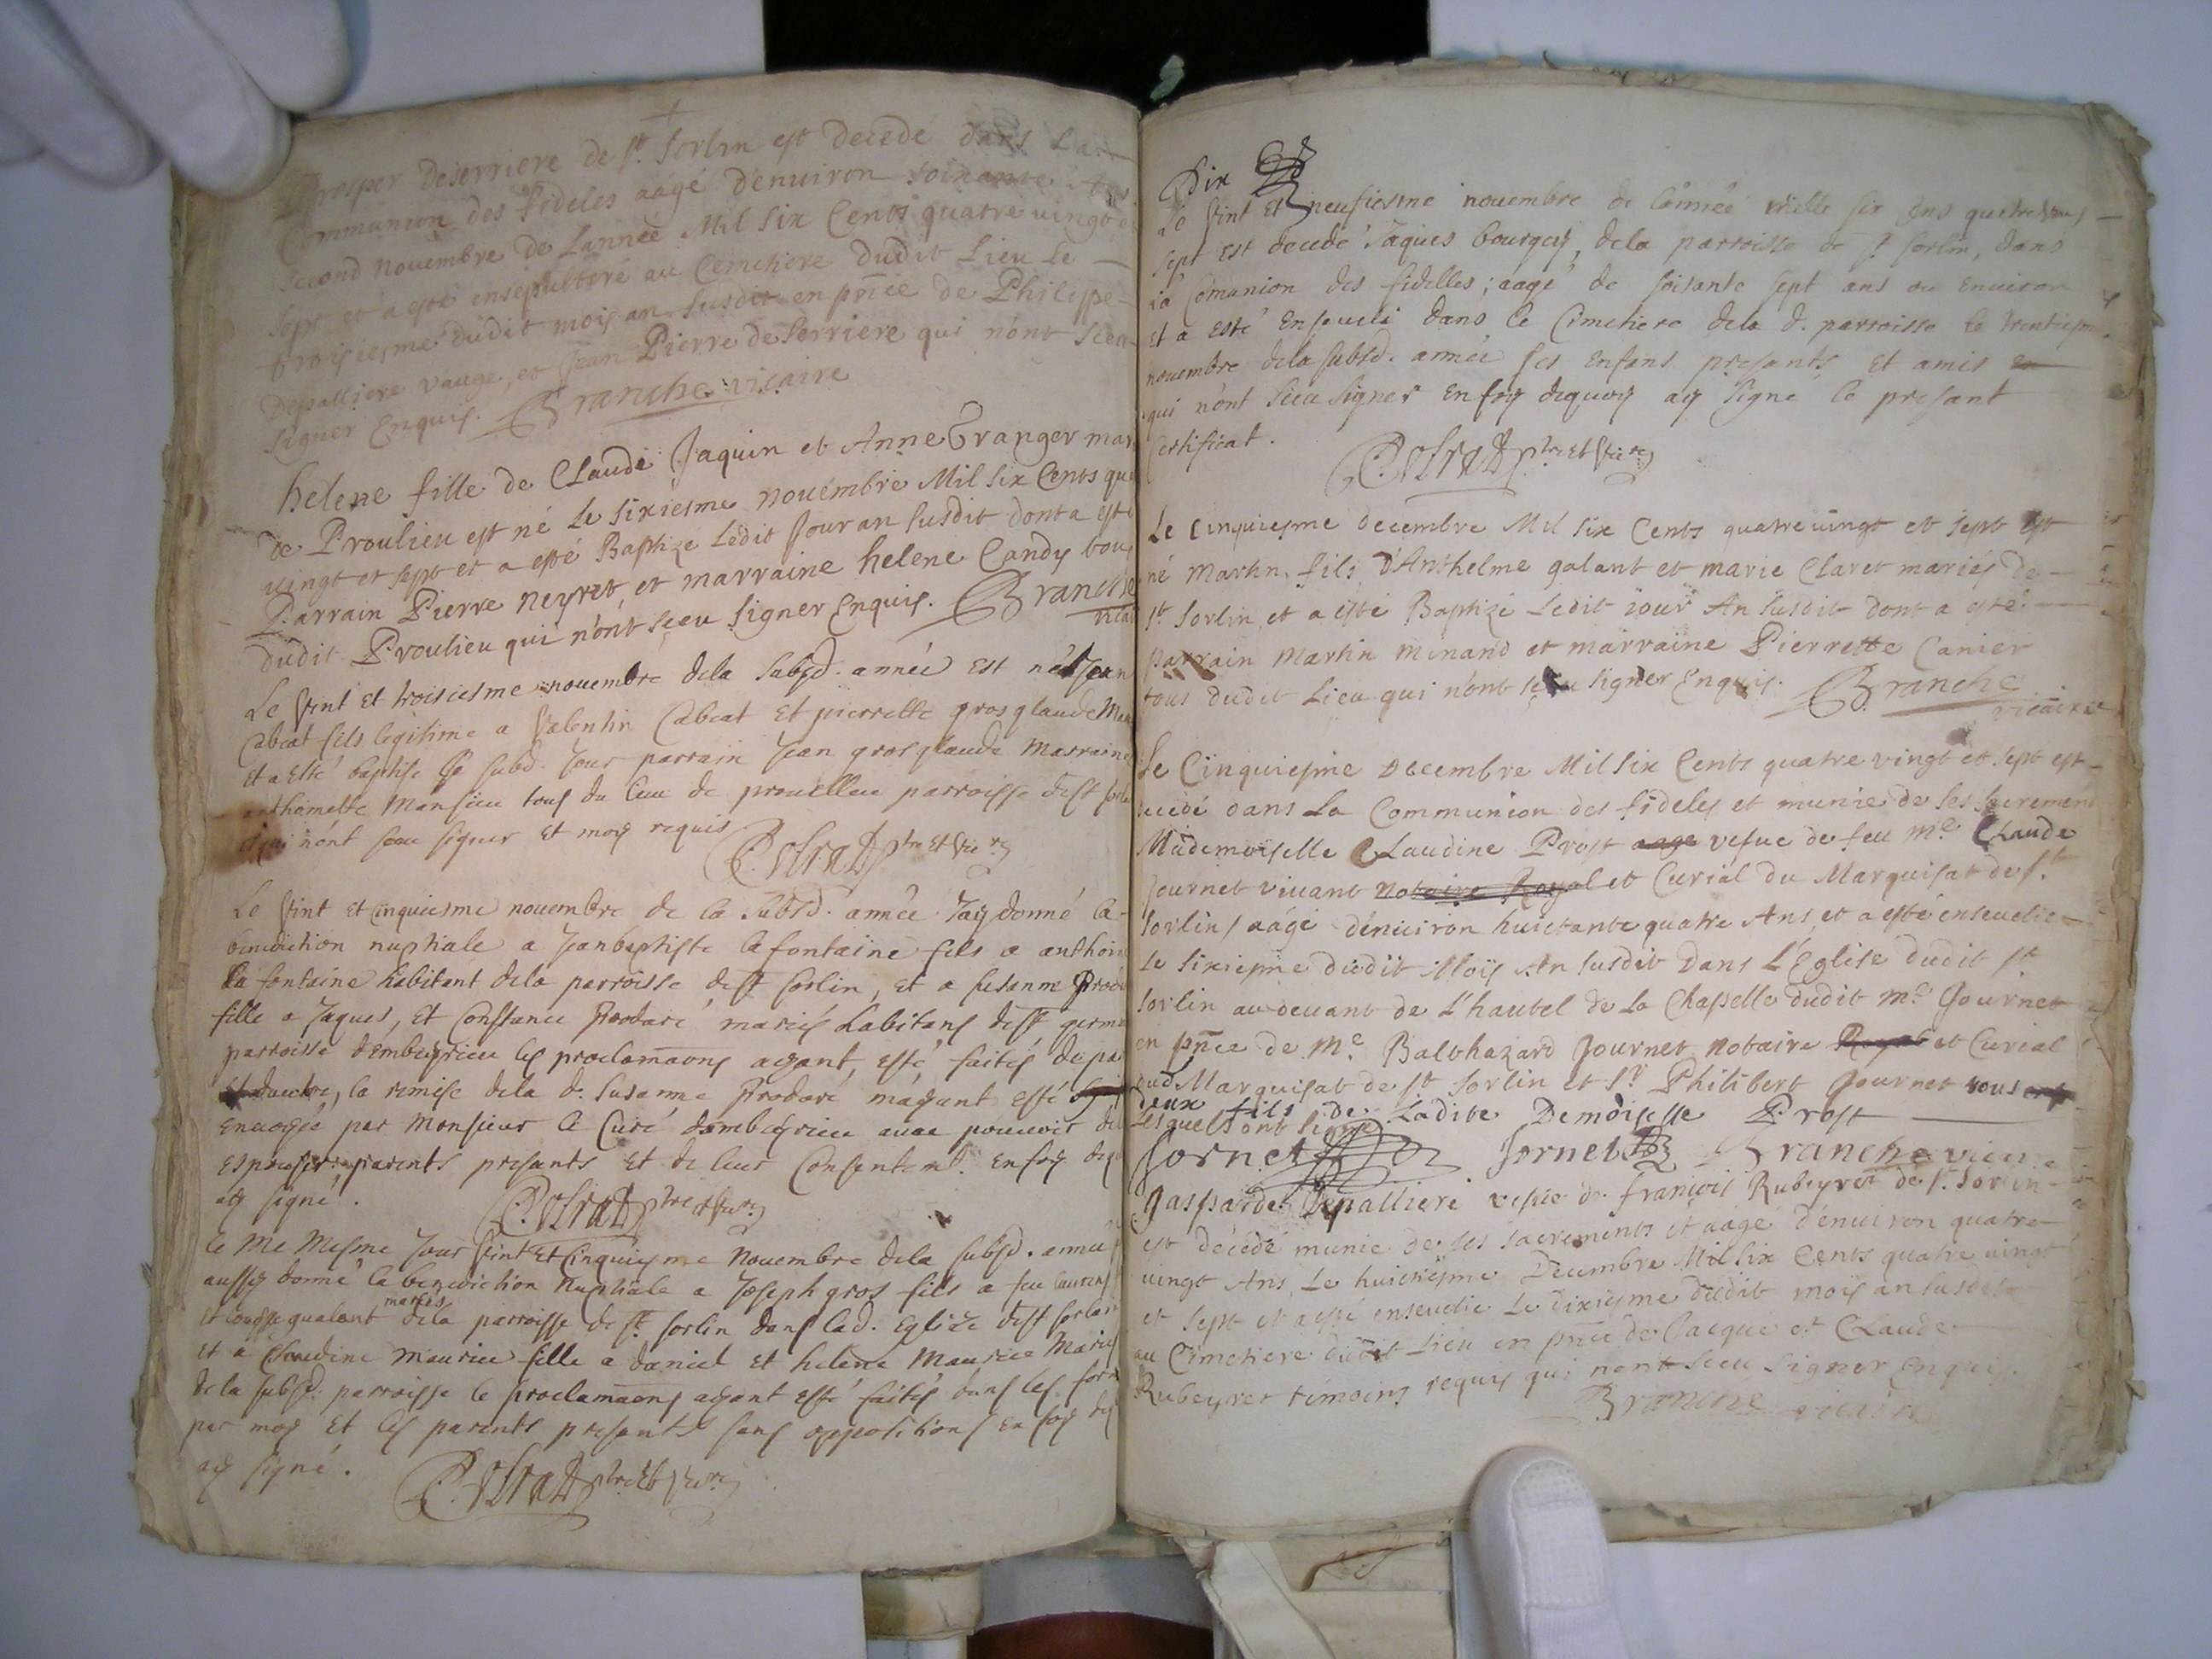 Prosper Deserriere de st. Sorlin est decedé dans La
Communion des Fideles aagé d'enuiron soixante Ans
Second nouembre de Lannée Mil Six Cents quatre uingt et
sept et a esté ensepulturé au Cemetiere dudit Lieu Le
troisiesme dudit mois an susdit en pnce de Philippe
Depalliere vauge, et Jean Pierre de Serriere qui n'ont sceu
signer Enquis. Branche vicaire
helene fille de Claude Jaquin et Anne Granger mar
de Proulieu est né Le sixiesme nouembre Mil six Cents qua
uingt et sept et a esté Baptizé Ledit Jour an susdit dont a esté
Parrain Pierre Neyret, et marraine helene Candy tous
dudit Proulieu qui n'ont sceu signer Enquis. Branche
vicai
Le vint Et troisiesme nouembre dela subsd. année est né Jean
Cabeat fils legitime a Valentin Cabeat Et pierrette gros glaude Mar
Et a Esté baptise Le subd. Jour parrain Jean gros glaude Marraine
anthomette Monsieu tous du lieu de prouellieu parroisse de st sorlin
qui n'ont sceu signer Et moy requis
ptre Et vic re
Le vint Et cinquiesme nouembre de la subsd. année Jay donné la
benediction nuptiale a Jeanbaptiste lafontaine fils a anthoin
La fontaine habitant dela parroisse de st sorlin, Et a susanne Prod
fille a Jaques, Et Constance Prodaré mariés habitans de st germ
parroisse dembeyrieu les proclamaons ayant, esté faites de pa
Et dautre, la remise dela d. Susanne Prodaré mayant esté
Enuoyée par Monsieur le Curé dambeyrieu auec pouuoir de
Espouser: parents presants Et de leur Consentemt. En foy deq
ay signé.
ptre et vic re
Le Me Mesme Jour vint Et Cinquiesme Nouembre dela subsd. année
aussy donné la benediction Nuptiale a Joseph gros fils a feu laurens
Et gualant mariés dela parroisse de st. sorlin dans lad. Eglize de st sorlin
Et a Claudine Maurice fille a daniel Et helene Maurice Mariés
de la subsd. parroisse le proclamaons ayant esté faites dans les form
par moy Et les parents presants sans oppositions En foy deq
ay signé.
ptre Et vic re
Dix
Le vint Et neufiesme nouembre de l'année mille six sens quatre vins
sept est decedé Jaques bourgey, dela parroisse de st sorlin, dans
la Comunion des fidelles; aagé de soisante sept ans ou Enuiron
Et a esté Enseueli dans le Cimetiere dela d. parroisse le trentiesme
nouembre dela subsd. année ses Enfans presants Et amis
qui n'ont sceu signer En foy dequoy ay signé le presant
Certificat.
ptre Et vic re
Le Cinquiesme decembre Mil six Cents quatre uingt et sept est
né Martin fils D'Anthelme galant et marie Claret mariés de
st. Sorlin, et a esté Baptizé Ledit iour An susdit dont a esté
parrain Martin Minand et marraine Pierrette Canier
tous dudit Lieu qui n'ont sceu signer Enquis. Branche
vicaire
Le Cinquiesme Decembre Mil six Cents quatre vingt et sept est
decedé dans La Communion des fideles et munie de ses sacremens
Mademoiselle Claudine Prost aage vesue de feu Me. Claude
Journet viuant notaire Royal et Curial du Marquisat de st.
Sorlin, aagé d'enuiron huictante quatre Ans, et a esté enseuelie
Le sixiesme dudit Mois An susdit Dans L'Eglise dudit st.
Sorlin au deuant de L'hautel de La Chapelle dudit me. Journet
en pnce de Me. Balthazard Journet notaire Royal et Curial
dud Marquisat de st Sorlin et Sr. Philibert Journet tous
deux fils de Ladite Demoiselle Prost
Lesquels ont signé
Jornet Jornet Branche vicaire
Gasparde Depalliere vesue de françois Rubeyret de st. Sorlin
est décédé munie de ses sacrements et aagé d'enuiron quatre
uingt Ans, Le huictiesme Decembre Mil six Cents quatre uingt
et sept et a esté enseuelie Le dixiesme dudit mois an susdit
au Cimetiere dudit Lieu en pnce de Jacque et Claude
Rubeyret témoins requis qui n'ont sceu signer Enquis.
Branche vicaire